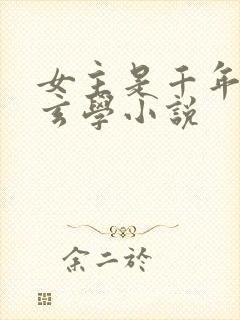 女主是千年
玄學小說
余二於